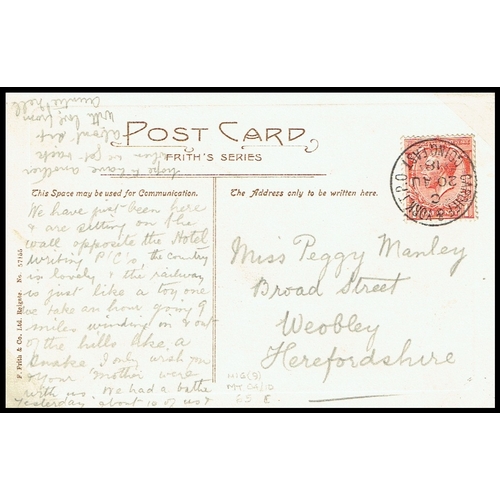 POST CARD
FRITH'S SERIES
This Space may be used for Communication.
The Address only to be written here.
We have just been here
& are sitting on the
wall opposite the Hotel
writing P/C's, the country
is lovely & the railway
is just like a toy one
we take an hour going 9
miles winding in & out
of the hills like a
snake I only wish you
& your Mother were
with us. We had a bathe
yesterday about 10 of us &
hope to have another
when we get back
about
with love from
Auntie Nell
Miss Peggy Manley
Broad Street
Weobley
Herefordshire
F. Frith & Co., Ltd. Reigate. No. 57155
CARDIFF & YORK T.P.O.
GOING
C
20 AU